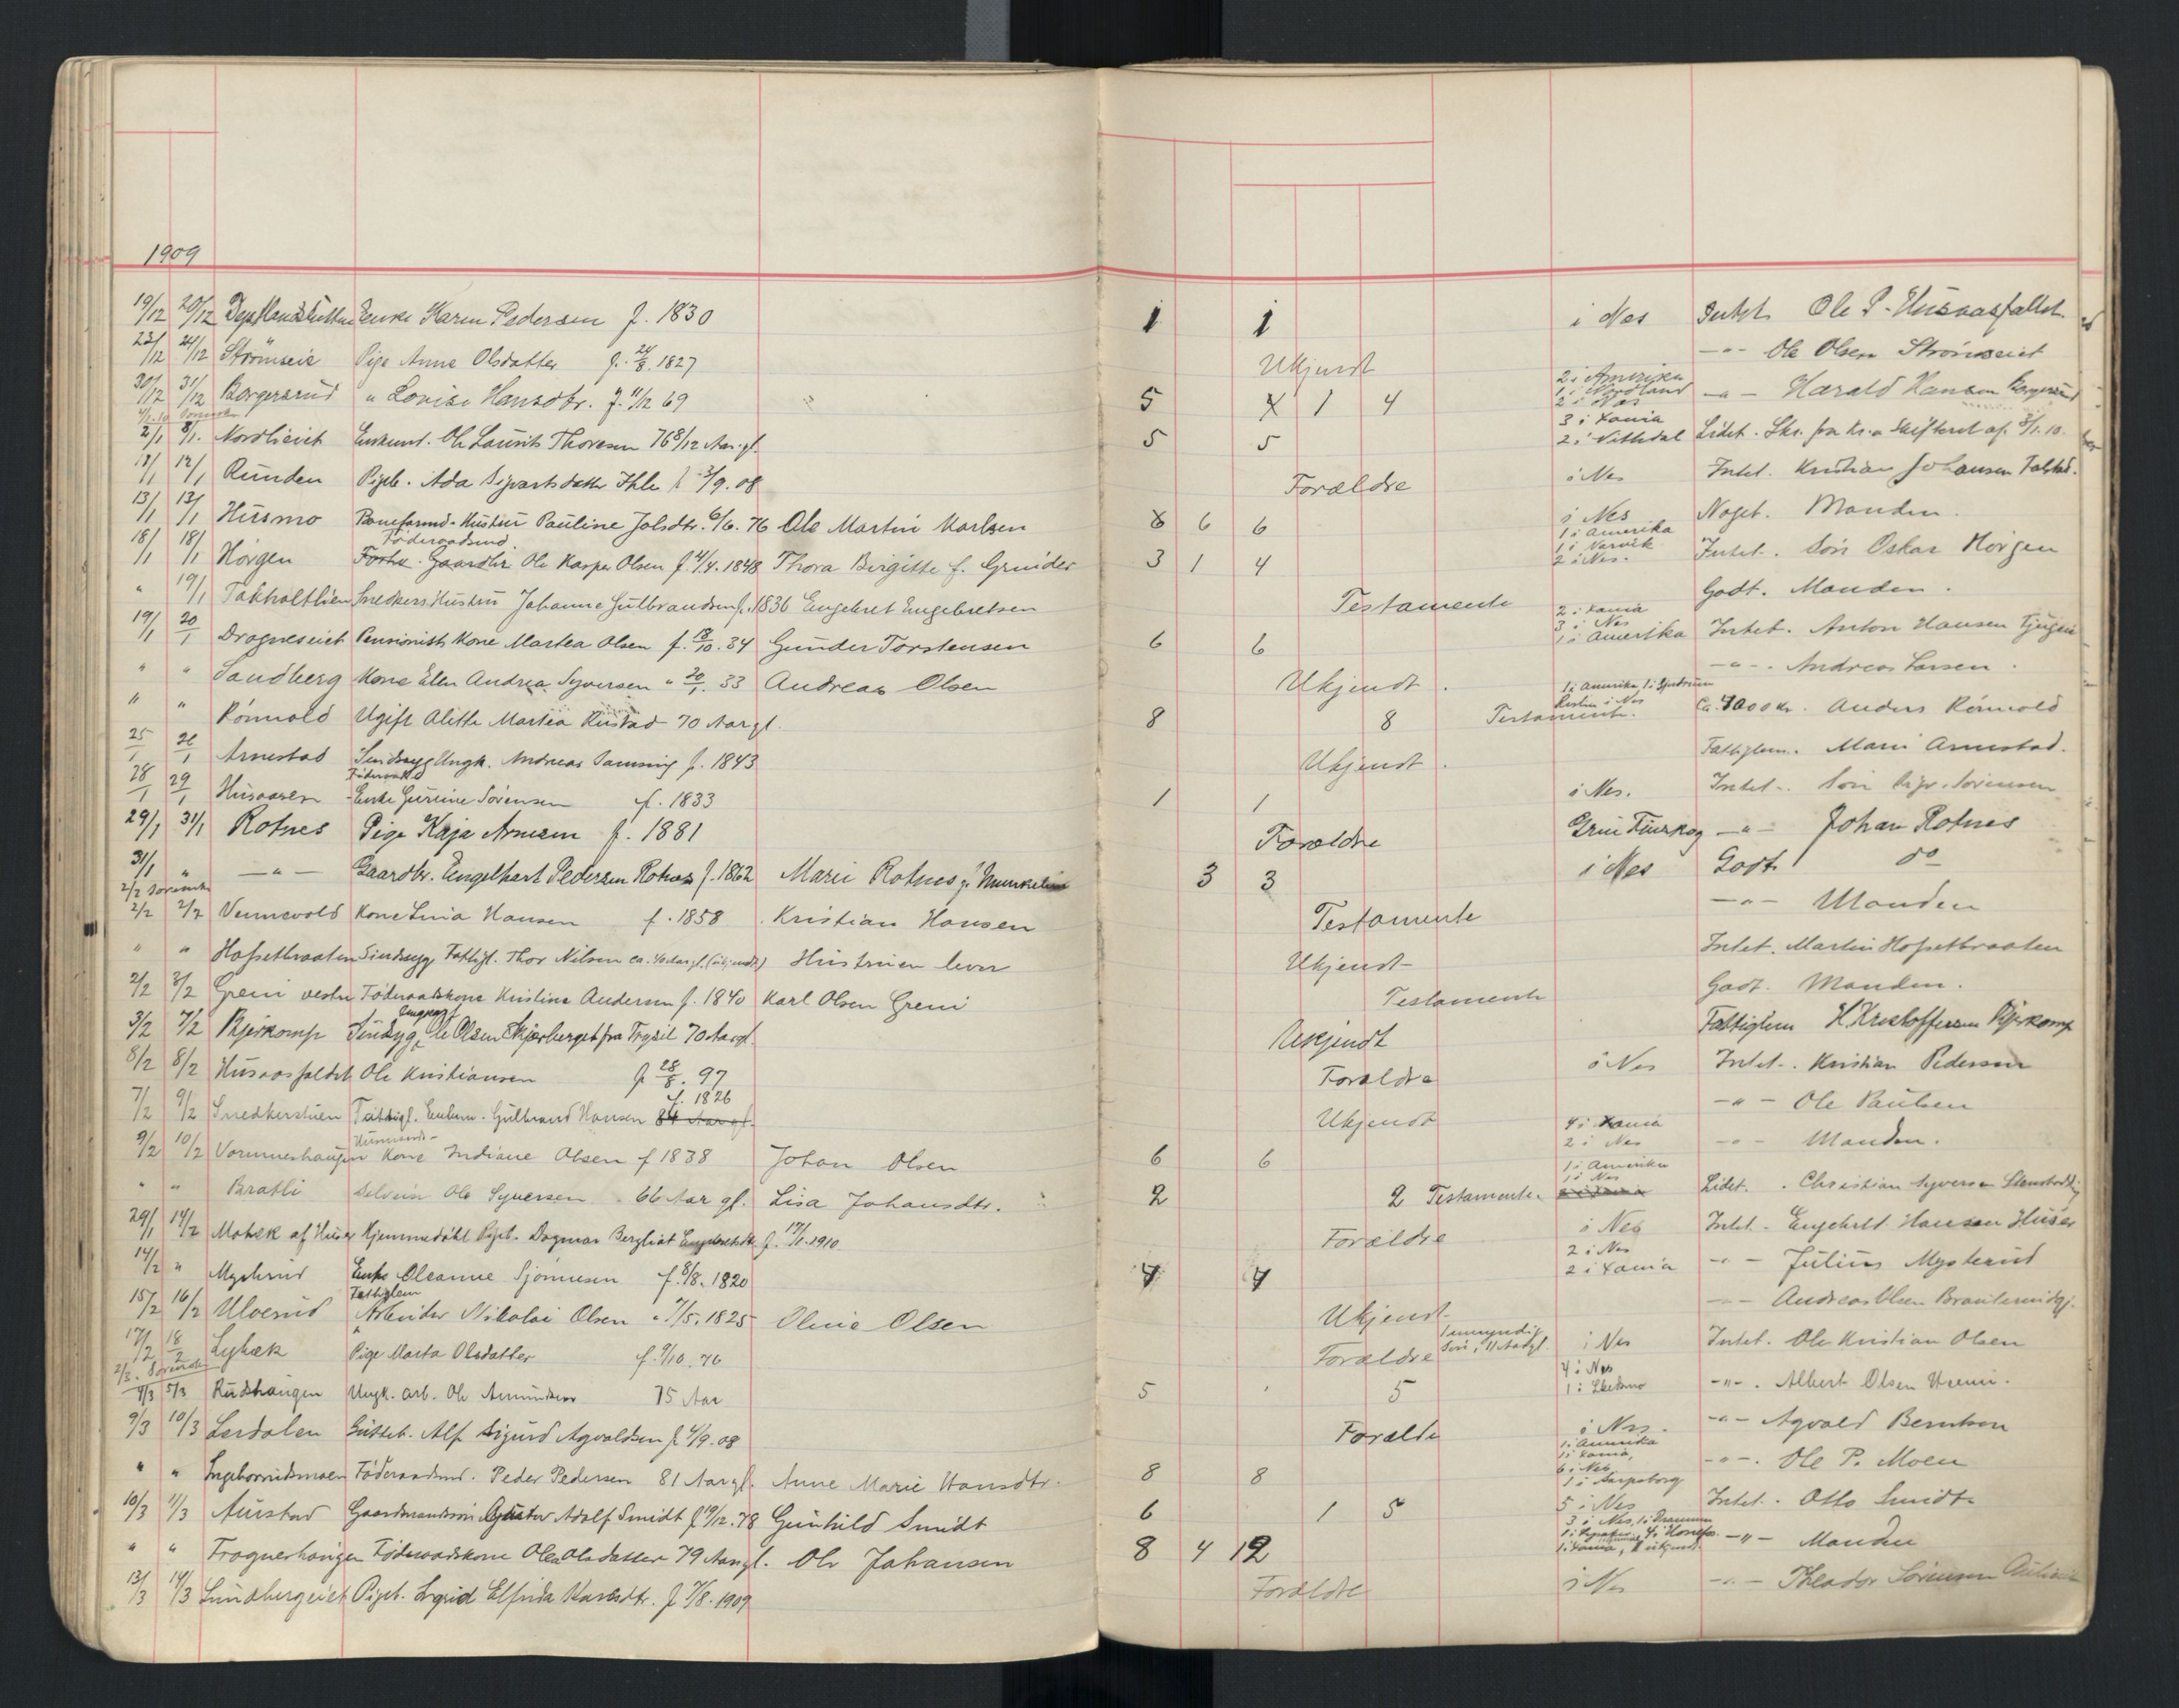 1909
19/12 20/12 Enke Karen Pedersen f. 1830 1 1 i Nes Intet Ole P. Husaasfallet
23/12 24/12 Strömseie Pige Anne Olsdatter f. 24/8. 1827 Ukjendt -"- Ole Olsen Strömseiet
30/12 31/12 Borgersrud " Lovise Hansdtr. f. 11/12 69 5 1 4 2 i Amerika 1 i Nordland 2 i Nes -"- Harald Hansen Borgersrud
2/1 8/1. Nordlieiet Enkemd. Ole Laurits Thoresen 76 8/12 Aar gl. 5 5 3 i Xania 2 i Nittedal Lidet. Skr. fra Kr.a Skifteret af 8/1.10.
12/1 Runden Pigeb. Ada Sigvartsdatter Ihle f. 3/9. 08 Forældre i Nes Intet. Kristian Johansen
13/1 13/1 Husmo Hustru Pauline 6/6. 76 Ole Martin Karlsen 6 6 i Nes Noget. Manden.
Föderaadsmd
18/1 18/1 Horgen Gaardbr. Ole Kasper Olsen f. 4/4. 1848 Thora Birgitte f. Grinder 3 1 4 1 i Amerika 1 i Narvik 2 i Nes. Intet. Sön Oskar Horgen
" 19/1 Snedkers Hustru Johanne Gulbrandsen f. 1836 Engebret Engebretsen Testamente Godt. Manden.
19/1 20/1 Drogneseiet Pensionists Kone Martea Olsen f. 18/10. 34 Gunder Torstensen 6 6 2 i Xania 3 i Nes 1 i Amerika Intet. Anton Hansen
" " Sandberg Kone Ellen Andrea Syversen " 20/1. 33 Andreas Olsen Ukjendt. -"-. Andreas Larsen.
" " Rönvold Ugift Alette Martea Rustad 70 Aar gl. 8 8 Testamente. 1 i Amerika, Resten i Nes Anders Rönvold
25/1 26/1 Arnestad Sindssyg Ungk. Andreas f. 1843 Ukjendt. Fattiglem. Marii Arnestad.
28/1 29/1 Husaasen Enke Gurine Sörensen f. 1833 1 1 i Nes. Intet. Sön Sörensen
29/1 31/1 Rotnes Pige Kaja Arnesen f. 1881 Forældre Grue Finskog -"- Johan Rotnes
31/1 " -"- Gaardbr. Engelhart Pedersen Rotnes f. 1862 Marie Rotnes 3 3 i Nes Godt do
2/2 2/2 Vennevold Kone Lina Hansen f. 1858 Kristian Hansen Testamente -"- Manden
" " Hofsetbraaten Sindssyg Fattigl. Thor Nilsen (ukjendt) Hustruen lever Ukjendt Intet. Martin Hofsetbraaten
2/2 3/2 Greni vestre Föderaadskone Kristine Andersen f. 1840 Karl Olsen Greni Testamente Godt. Manden.
3/2 7/2 Bjerkomp Sindsyg Ole Olsen Skjærberget fra Trysil 70 Aar gl. Ukjendt Fattiglem H. Kristoffersen Bjerkomp
8/2 8/2 Husaasfaldet Ole Kristiansen f. 28/8. 97 Forældre i Nes Intet. Kristian Pedersen
7/2 9/2 Snedkerstuen Fattigl. Enkem. Gulbrand Hansen f. 1826 84 Aar gl. Ukjendt -"- Ole Paulsen
9/2 10/2 Vormneshaugen Kone Indiane Olsen f 1838 Johan Olsen 6 6 4 i Xania 2 i Nes -"- Manden.
" " Bratli Selveier Ole Syversen 66 Aar gl. Lisa Johansdtr. 2 2 Testamente. 1 i Amerika 1 i Nes Lidet. Christian Syversen
29/1 14/2 af Huser Hjemmedöbt Pigeb. Dagmar Bergliot Engebretsdtr. f. 17/1.1910 Forældre i Nes Intet. Engebret Hansen Huser
14/2 " Mysterud Enke Oleanne f. 8/8. 1820 4 4 2 i Nes 2 i Xania -"- Julius Mysterud
Fattiglem
15/2 16/2 Ulverud Arbeider Nikolai Olsen " 7/5. 1825 Oline Olsen Ukjendt -"- Andreas Olsen
17/2 18/2 Lybæk Pige Marta Olsdatter f. 9/10. 76 Forældre 1 umyndig Sön, 11 Aar gl. i Nes Intet. Ole Kristian Olsen
4/3 5/3 Rudshaugen Ungk. arb. Ole Amundsen 75 Aar 5 5 4 i Nes 1 i -"-. Albert Olsen
9/3 10/3 Lerdalen Gutteb. Alf Sigurd Agvaldsen f. 4/9. 08 Forældre i Nes. -"- Agvald Berntsen
" " Föderaadsmd. Peder Pedersen 81 Aar gl. Anne Marie Hansdtr. 8 8 1 i Amerika 1 i Xania, 6 i Nes -"-. Ole P. Moen
10/3 11/3 Aurstad Gaardmandssön Gustav Adolf Smidt f 19/12. 78 Gunhild Smidt 6 1 5 1 i Sarpsborg 5 i Nes Intet. Otto Smidt
" " Frognerhaugen Föderaadskone Olea Olsdatter 79 Aar gl. Ole Johansen 8 4 12 3 i Nes, 1 i Drammen -"- Manden
13/3 14/3 Pigeb. Ingrid Elfrida Karlsdtr. f 7/8. 1909 Forældre i Nes -"- Theodor Sörensen